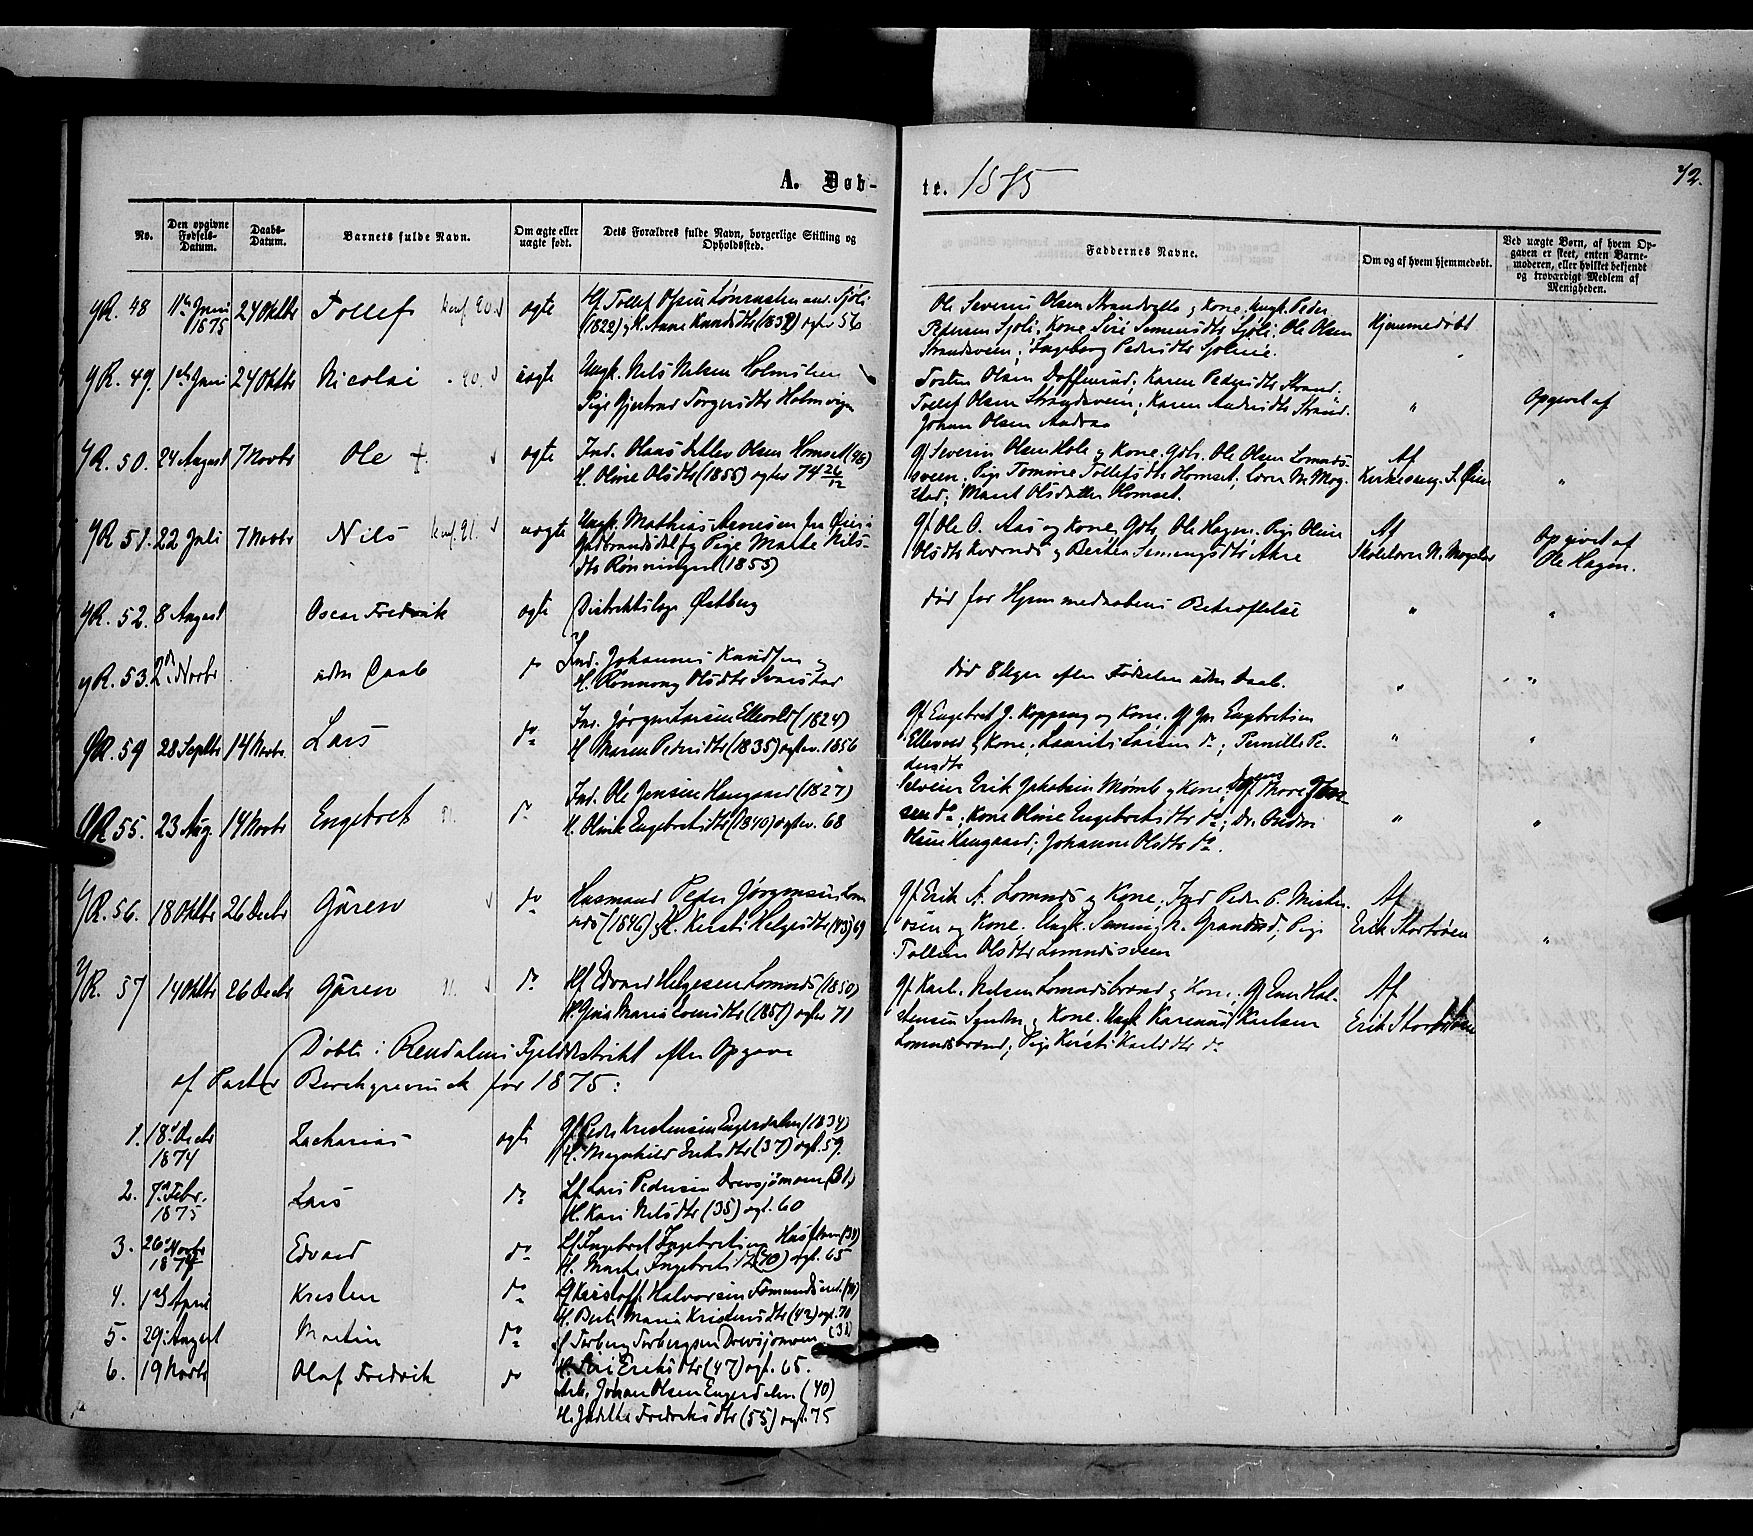 A. Døb-
te. 1875
72.
No.
Den opgivne Fødsels-Datum.
Daabs-Datum.
Barnets fulde Navn.
Om ægte eller uægte født.
Dets Forældres fulde Navn, borgerlige Stilling og Opholdssted.
Faddernes Navne.
Om og af hvem hjemmedøbt.
Ved uægte Børn, af hvem Opgaven er skeet, enten Barnemoderen, eller hvilket bekjendt og troværdigt Medlem af Menigheden.
YR. 48 11te Juni 1875 24 Oktbr Tollef ægte
(1822) og H. Anne Knudsdtr (1832) ægtev 56
Ole Severin Olsen og Kone, Ungk. Peder
Pedersen Sjoli, Kone Siri Simensdtr Sjoli. Ole Olsen
Strandsveen; Ingeborg Pedersdtr
Hjemmedøbt
YR. 49. 1ste Juni 24 Oktbr Nicolai uægte Ungk. Nils Nelsen Holmslien
Pige Gjertrud Torgersdtr Holmvigen
Tosten Olsen ; Karen Pedersdtr Strand.
Tollef Olsen Strandsveen; Karen Andersdtr Strand.
Johan Olsen
" Opgivet af
YR. 50. 24 August 7 Novbr Ole + ægte Ind. Olaus Detlev Olsen Homset (46)
H. Oline Olsdtr (1855) ægtev 74 26/12
Gf Severin Olsen Hole og Kone. Gdbr. Ole Olsen Lomnds-
sveen; Pige Tomine Tollefsdtr Homset; Lærer N. Mog-
stad; Maret Olsdatter Homset.
Af
Kirkesang. S. Øien "
YR 51. 22 Juli 7 Novbr Nils uægte Ungk. Mathias Arnesen fra Øier i
Gudbrandsdal og Pige Marte Nils-
dtr Rønningen (1853)
Gf Ole O. Aas og Kone, Gdbr Ole Hagen. Pige Oline
Olsdtr Kværnds og Berthe Semingsdtr Akre
Af
Skolelærer N. Mogstad
Opgivet af
Ole Hagen.
YR. 52. 8 August Oscar Fredrik ægte Distriktslæge Østberg
død før Hjemmedaabens Bekræftelse " "
YR. 53. 2den Novbr uden Daab do Ind. Johannes Knudsen og
H. Rønnoug Olsdtr
død 8 Uger efter Fødselen uden Daab. " "
YR. 54 28 Septbr 14 Novbr Lars do Ind. Jørgen Larsen Ellevold (1824)
H. Maren Pedersdtr (1835) ægtev. 1856
Gf Engebret J. Koppang og Kone. Gf Jon Engebretsen
Ellevold og Kone; Laurits Larsen do; Pernille Pe-
dersdtr
" "
YR 55. 23 Aug 14 Novbr Engebret do Ind. Ole Jensen Haugaard (1827)
H. Oline Engebretsdtr (1840) ægtev. 68
Selveier Erik Jakobsen og Kone, Gf Thore
sen do; Kone Oline Engebretsdtr do; Dr.
Olsen Haugaard; Johanne Olsdtr do.
" "
YR. 56. 18 Oktbr 26 Decbr Gören do Husmand Peder Jørgensen Lom-
nds (1846) og H. Kersti Helgesdtr
Gf Erik A. Lomnds og Kone, Ind Peder P. Mister-
osen og Kone, Ungk. Seming N. Granerud; Pige
Olsdtr Lomndssveen
Af
Erik Storøren "
YR. 57 14 Oktbr 26 Decbr Gören do Hf Edvard Helgesen Lomnds (1850)
H. Gina Marie (1851) ægtev 71
Gf Karl. Nelsen Lomndsbrænd og Kone, Gf Ener Hal-
stensen og Kone. Ungk Karenius Karlsen
Lomndsbrænd; Pige Kersti Karlsdtr do
Af
Erik Storøren
Døbte i Rendalens Fjelddistrikt efter Opgave
af Pastor Borchgrevinck for 1875:
1. 18de Decbr 1874 Zacharias ægte Gf Peder Kristensen Engerdalen (1834)
H. Magnhild Eriksdtr (37) ægt. 59.
2. 7de Febr. 1875 Lars do Lf Lars Pedersen Drevsjømoen
H. Kari Nilsdtr (35) ægt. 60
3. 26 Novbr 1874 Edvard do Lf Ingebret Ingebretsen
H. Marte Ingebretsdtr (40) ægt. 65
4. 1ste April Kristen do Gf Kristoff. Halvorsen Femundsund.
H. Berte Maria Kristensdtr (42) ægt. 70
5. 29 August Martin do Torberg Torbergsen Drevsjømoen (38)
H. Siri Eriksdtr (47) ægt. 65.
6. 19 Novbr Olaf Fredrik do Arb. Johan Olsen Engerdalen (40)
H. Fredriksdtr (55) ægt. 75